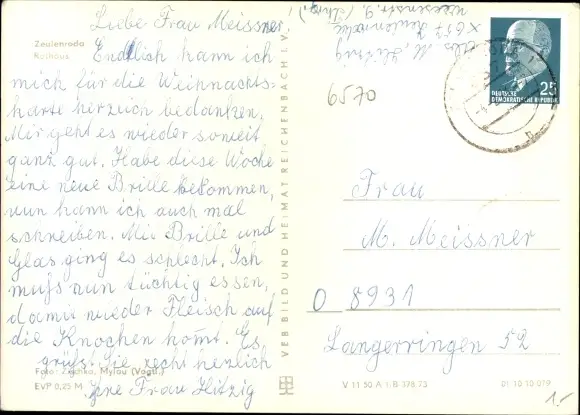 Zeulenroda
Rathaus
Liebe Frau Meissner!
Endlich kann ich
mich für die Weihnachts-
karte herzlich bedanken.
Mir geht es wieder soweit
ganz gut. Habe diese Woche
eine neue Brille bekommen,
nun kann ich auch mal
schreiben. Mit Brille und
Glas ging es schlecht. Ich
muß nun tüchtig essen,
damit wieder Fleisch auf
die Knochen kommt. Es
grüßt Sie recht herzlich
Ihre Frau Hitzig
Foto: Zschko, Mylau (Vogtl.)
EVP 0,25 M
VEB BILD UND HEIMAT REICHENBACH I. V.
Zeulenroda
6570
DEUTSCHE
DEMOKRATISCHE REPUBLIK
25
Frau
M. Meissner
O 8931
Langerringen 52
V 11 50 A 1/B 378/73
01 10 10 079
1.-